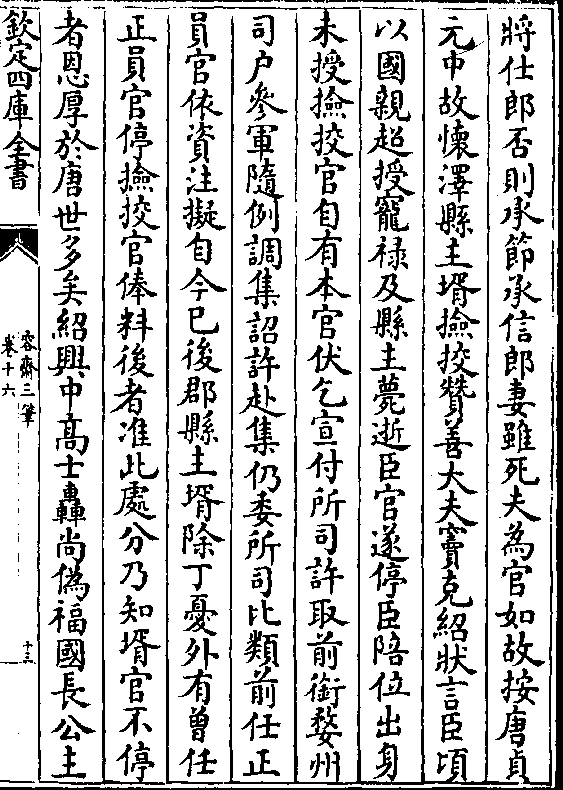 將仕郎否則承節承信郎妻雖死夫為官如故按唐貞
元中故懷澤縣主壻撿挍贊善大夫竇克紹狀言臣頃
以國親超授寵禄及縣主薨逝臣官遂停臣陪位出身
未授撿挍官自有本官伏乞宣付所司許取前銜婺州
司户參軍隨例調集詔許赴集仍委所司比類前任正
員官依資注擬自今已後郡縣主壻除丁憂外有曾任
正員官停撿挍官俸料後者准此處分乃知壻官不停
者恩厚於唐世多矣紹興中髙士轟尚偽福國長公主
欽定四庫全書
容齋三筆
卷十六
十三